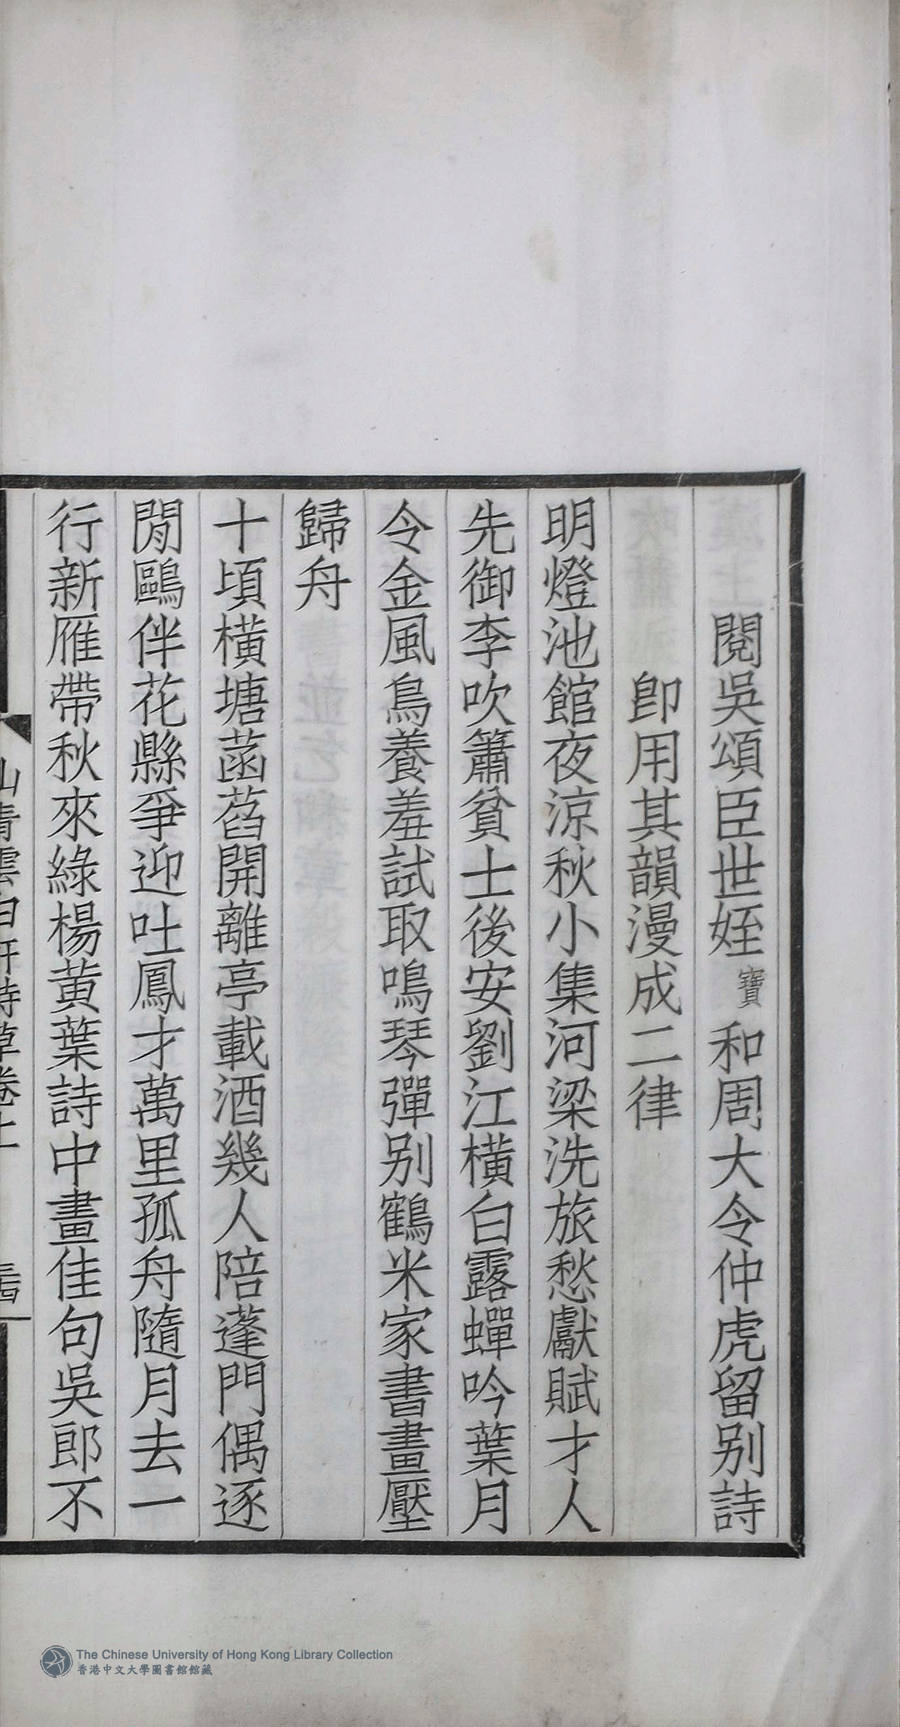 閱吳頌臣世姪寶和周大令仲虎留别詩
即用其韻漫成二律
明燈池館夜涼秋小集河梁洗旅愁獻賦才人
先御李吹簫貧士後安劉江橫白露蟬吟葉月
令金風鳥養羞試取鳴琴彈别鶴米家書畫壓
歸舟
十頃橫塘菡萏開離亭載酒幾人陪蓬門偶逐
閒鷗伴花縣爭迎吐鳳才萬里孤舟隨月去一
行新雁帶秋來綠楊黃葉詩中畫佳句吳郎不
山青雲白軒詩草卷上
The Chinese University of Hong Kong Library Collection
香港中文大學圖書館館藏